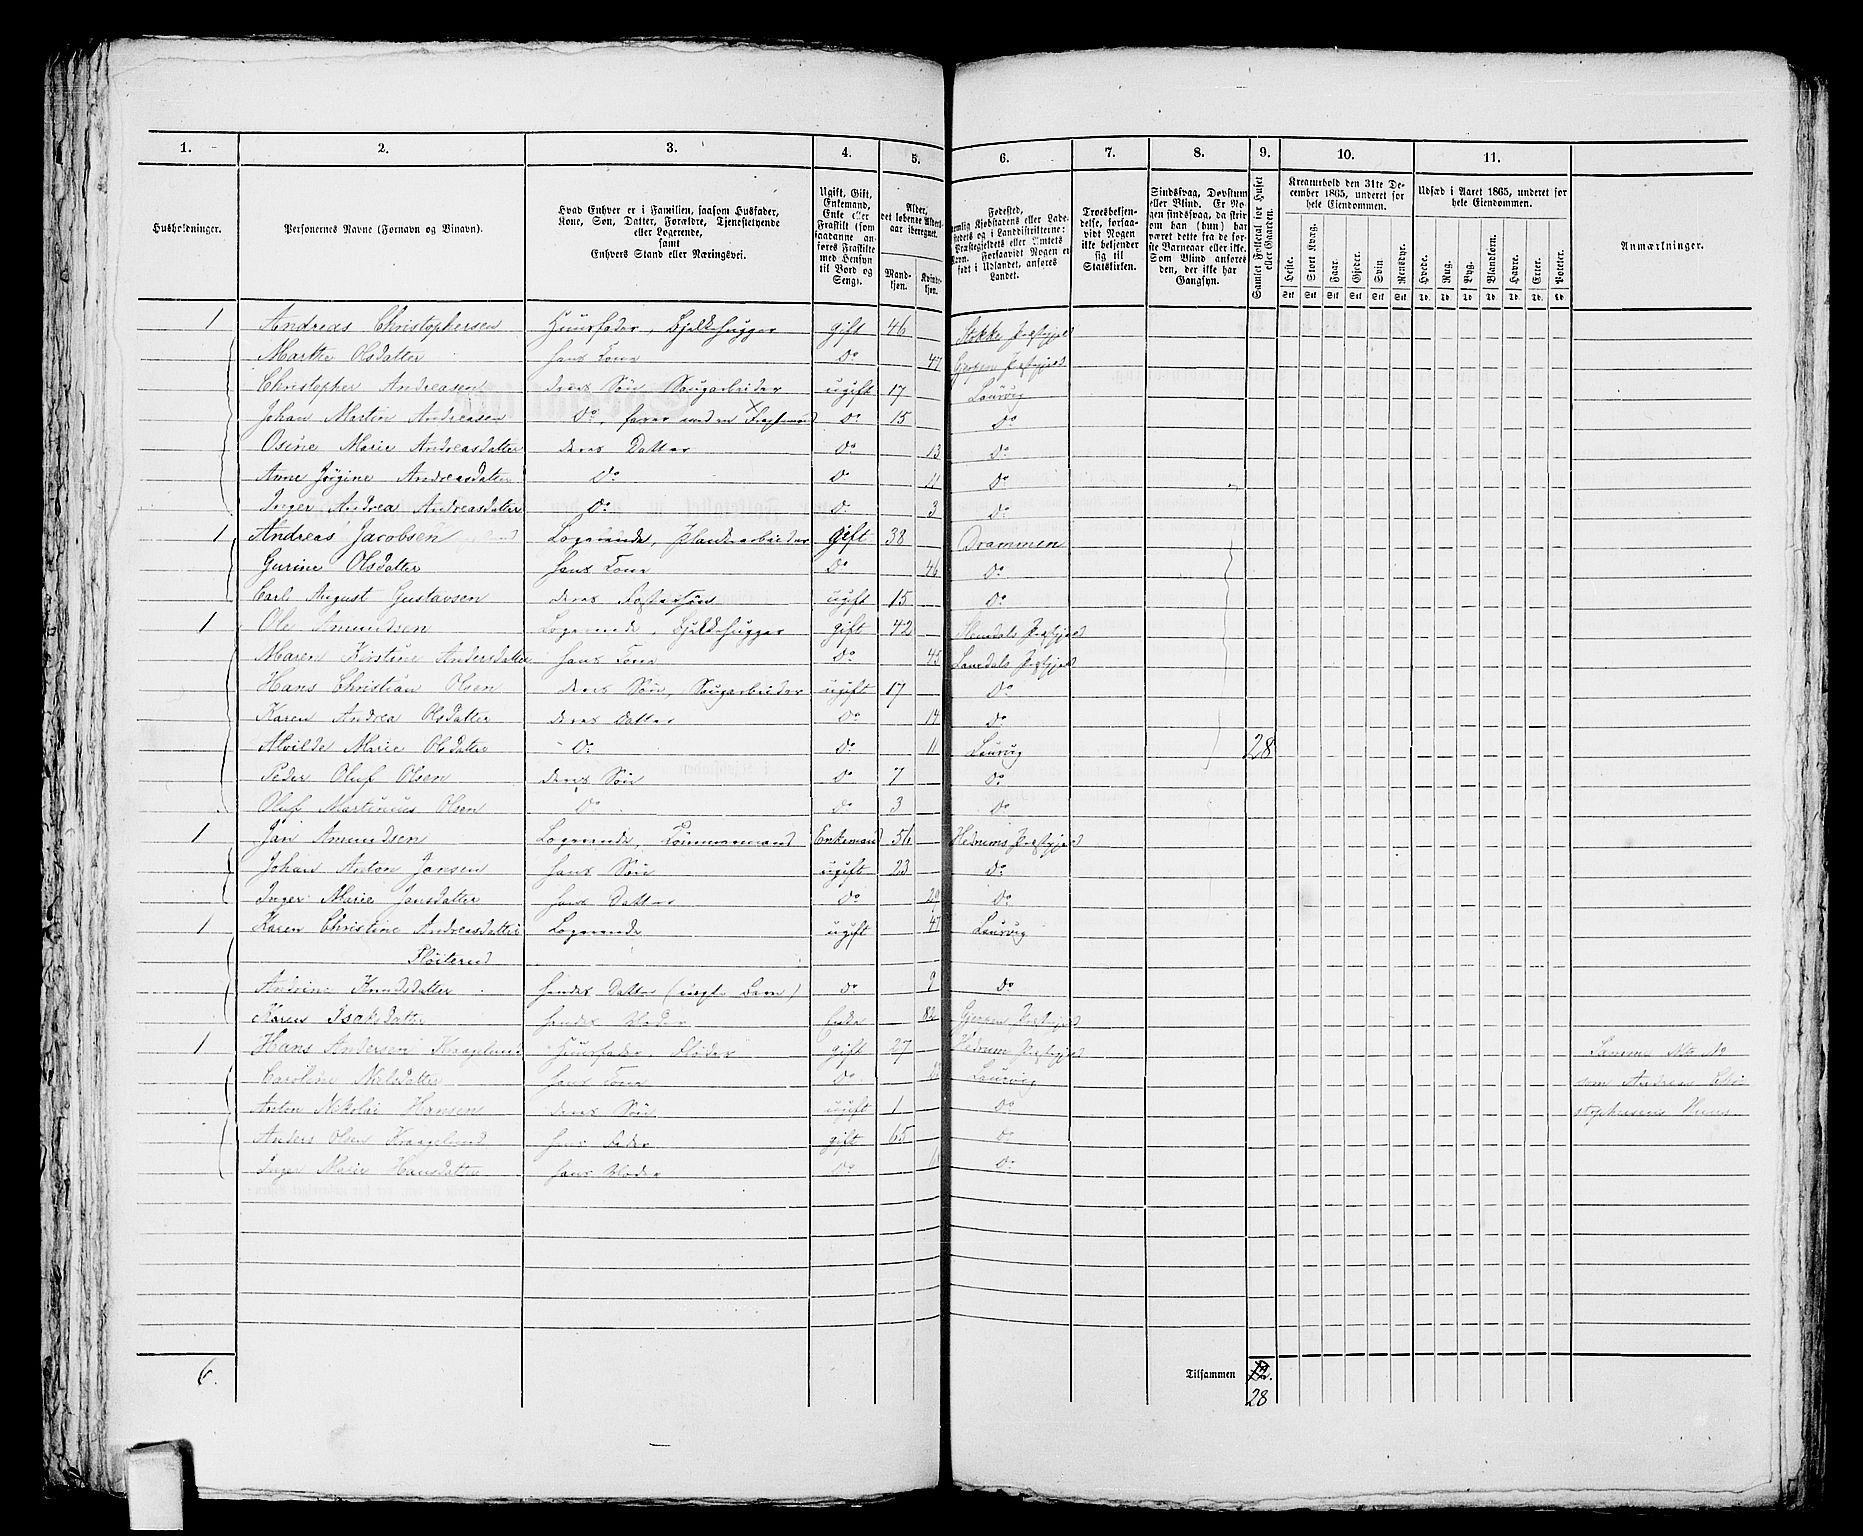 1. 2. 3. 4. 5. 6. 7. 8. 9. 10. 11.
Husholdninger. Personernes Navne (Fornavn og Binavn).
Hvad Enhver er i Familien, saasom Husfader, Kone, Søn, Datter, Forældre, Tjenestetyende eller Logerende, samt Enhvers Stand eller Næringsvei.
Ugift, Gift, Enkemand, Enke eller Fraskilt (som saadanne anføres Fraskilte med Hensyn til Bord og Seng).
Alder, det løbende Alders-aar iberegnet. Mand-kjøn. Kvinde-kjøn.
Fødested, nemlig Kjøbstadens eller Ladestedets og i Landdistrikterne: Præstegjeldets eller Amtets Navn. Forsaavidt Nogen er født i Udlandet, anføres Landet.
Troesbekjendelse, forsaavidt Nogen ikke bekjender sig til Statskirken.
Sindssvag, Døvstum eller Blind. Er Nogen sindssvag, da skrives som han (hun) har været det fra de første Barneaar eller ikke. Som Blind anføres den, der ikke har Gangsyn.
Samlet Folketal for Huset eller Gaarden.
Kreaturhold den 31te December 1865, underet for hele Eiendommen.
Heste. Stort Kvæg. Faar. Gjeder. Svin. Rensdyr.
Udsæd i Aaret 1865, underet for hele Eiendommen.
Hvede. Rug. Byg. Blandkorn. Havre. Erter. Poteter.
Anmærkninger.
1 Andreas Christophersen Huusfader, Bjelkehugger gift 46 Stokke Præstgjeld
Marthe Olsdatter hans Kone Do 47 Gjerpen Præstgjeld
Christopher Andreasen deres Søn Saugarbeider ugift 17 Laurvig
Johan Martin Andreasen Do, farer med en Do 15 Do
Osine Marie Andreasdatter deres Datter Do 13 Do
Anne Jørgine Andreasdatter Do Do 11 Do
Inger Andrea Andreasdatter Do Do 3 Do
1 Andreas Jacobsen Logerende, Plankearbeider gift 38 Drammen
Gurine Olsdatter hans Kone Do 46 Do
Carl August Gustavsen deres Fostersøn ugift 15 Do
1 Ole Amundsen Logerende, Bjelkehugger gift 42 Præstgjeld
Maren Kristine Andersdatter hans Kone Do 45 Præstgjeld
Hans Christian Olsen deres Søn, Saugarbeider ugift 17 Do
Karen Andrea Olsdatter deres Datter Do 14 Do
Alvilde Marie Olsdatter Do Do 11 Laurvig 28
Peder Oluf Olsen deres Søn Do 7 Do
Oluf Martinius Olsen Do Do 3 Do
1 Jan Amundsen Logerende, Tømmermand Enkemand 56 Hedrums Præstgjeld
Johan Anton Jansen hans Søn ugift 23 Do
Inger Marie Jansdatter hans Datter Do 20 Do
1 Karen Christine Andreasdatter Logerende ugift 47 Laurvig
Fløiterud
Andrine Knudsdatter hendes Datter (uægte Barn) Do 9 Do
Karen Isaksdatter hendes Moder Enke 82 Gjerpen Præstgjeld
1 Hans Andersen Kaagelund Huusfader, Fløder gift 27 Hedrum Præstgjeld Samme Mtr No
Caroline Nielsdatter hans Kone Do Laurvig som Andreas Chri
Anton Nikolai Hansen deres Søn ugift 1 Do stophersens Huus
Anders Olsen Kaagelund hans Fader gift 65 Do
Inger Marie Hansdatter hans Moder Do Do
6. Tilsammen 12.
28